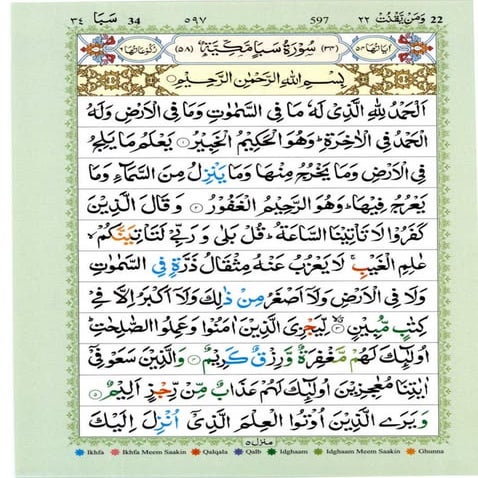 سَبَا ٣٤ 34 ٥٩٧ 597 وَمَنْ يَّقْنُتْ ٢٢ 22
اٰيَاتُهَا ٥٤ (٣٤) سُوْرَةُ سَبَاٍ مَكِّيَّةٌ (٥٨) رُكُوْعَاتُهَا ٦
بِسْمِ اللهِ الرَّحْمٰنِ الرَّحِيْمِ
اَلْحَمْدُ لِلّٰهِ الَّذِىْ لَهٗ مَا فِى السَّمٰوٰتِ وَمَا فِى الْاَرْضِ وَلَهُ
الْحَمْدُ فِى الْاٰخِرَةِؕ وَهُوَ الْحَكِيْمُ الْخَبِيْرُ ۱ يَعْلَمُ مَا يَلِجُ
فِى الْاَرْضِ وَمَا يَخْرُجُ مِنْهَا وَمَا يَنْزِلُ مِنَ السَّمَآءِ وَمَا
يَعْرُجُ فِيْهَاؕ وَهُوَ الرَّحِيْمُ الْغَفُوْرُ ۲ وَقَالَ الَّذِيْنَ
كَفَرُوْا لَا تَاْتِيْنَا السَّاعَةُؕ قُلْ بَلٰى وَرَبِّىْ لَتَاْتِيَنَّكُمْۙ
عٰلِمِ الْغَيْبِۚ لَا يَعْزُبُ عَنْهُ مِثْقَالُ ذَرَّةٍ فِى السَّمٰوٰتِ
وَلَا فِى الْاَرْضِ وَلَاۤ اَصْغَرُ مِنْ ذٰلِكَ وَلَاۤ اَكْبَرُ اِلَّا فِىْ
كِتٰبٍ مُّبِيْنٍۙ ۳ لِّيَجْزِىَ الَّذِيْنَ اٰمَنُوْا وَعَمِلُوا الصّٰلِحٰتِؕ
اُولٰٓئِكَ لَهُمْ مَّغْفِرَةٌ وَّرِزْقٌ كَرِيْمٌ ۴ وَالَّذِيْنَ سَعَوْ فِىْۤ
اٰيٰتِنَا مُعٰجِزِيْنَ اُولٰٓئِكَ لَهُمْ عَذَابٌ مِّنْ رِّجْزٍ اَلِيْمٌ ۵
وَيَرَى الَّذِيْنَ اُوْتُوا الْعِلْمَ الَّذِىْۤ اُنْزِلَ اِلَيْكَ
منزل ٥
Ikhfa Ikhfa Meem Saakin Qalqala Qalb Idghaam Idghaam Meem Saakin Ghunna